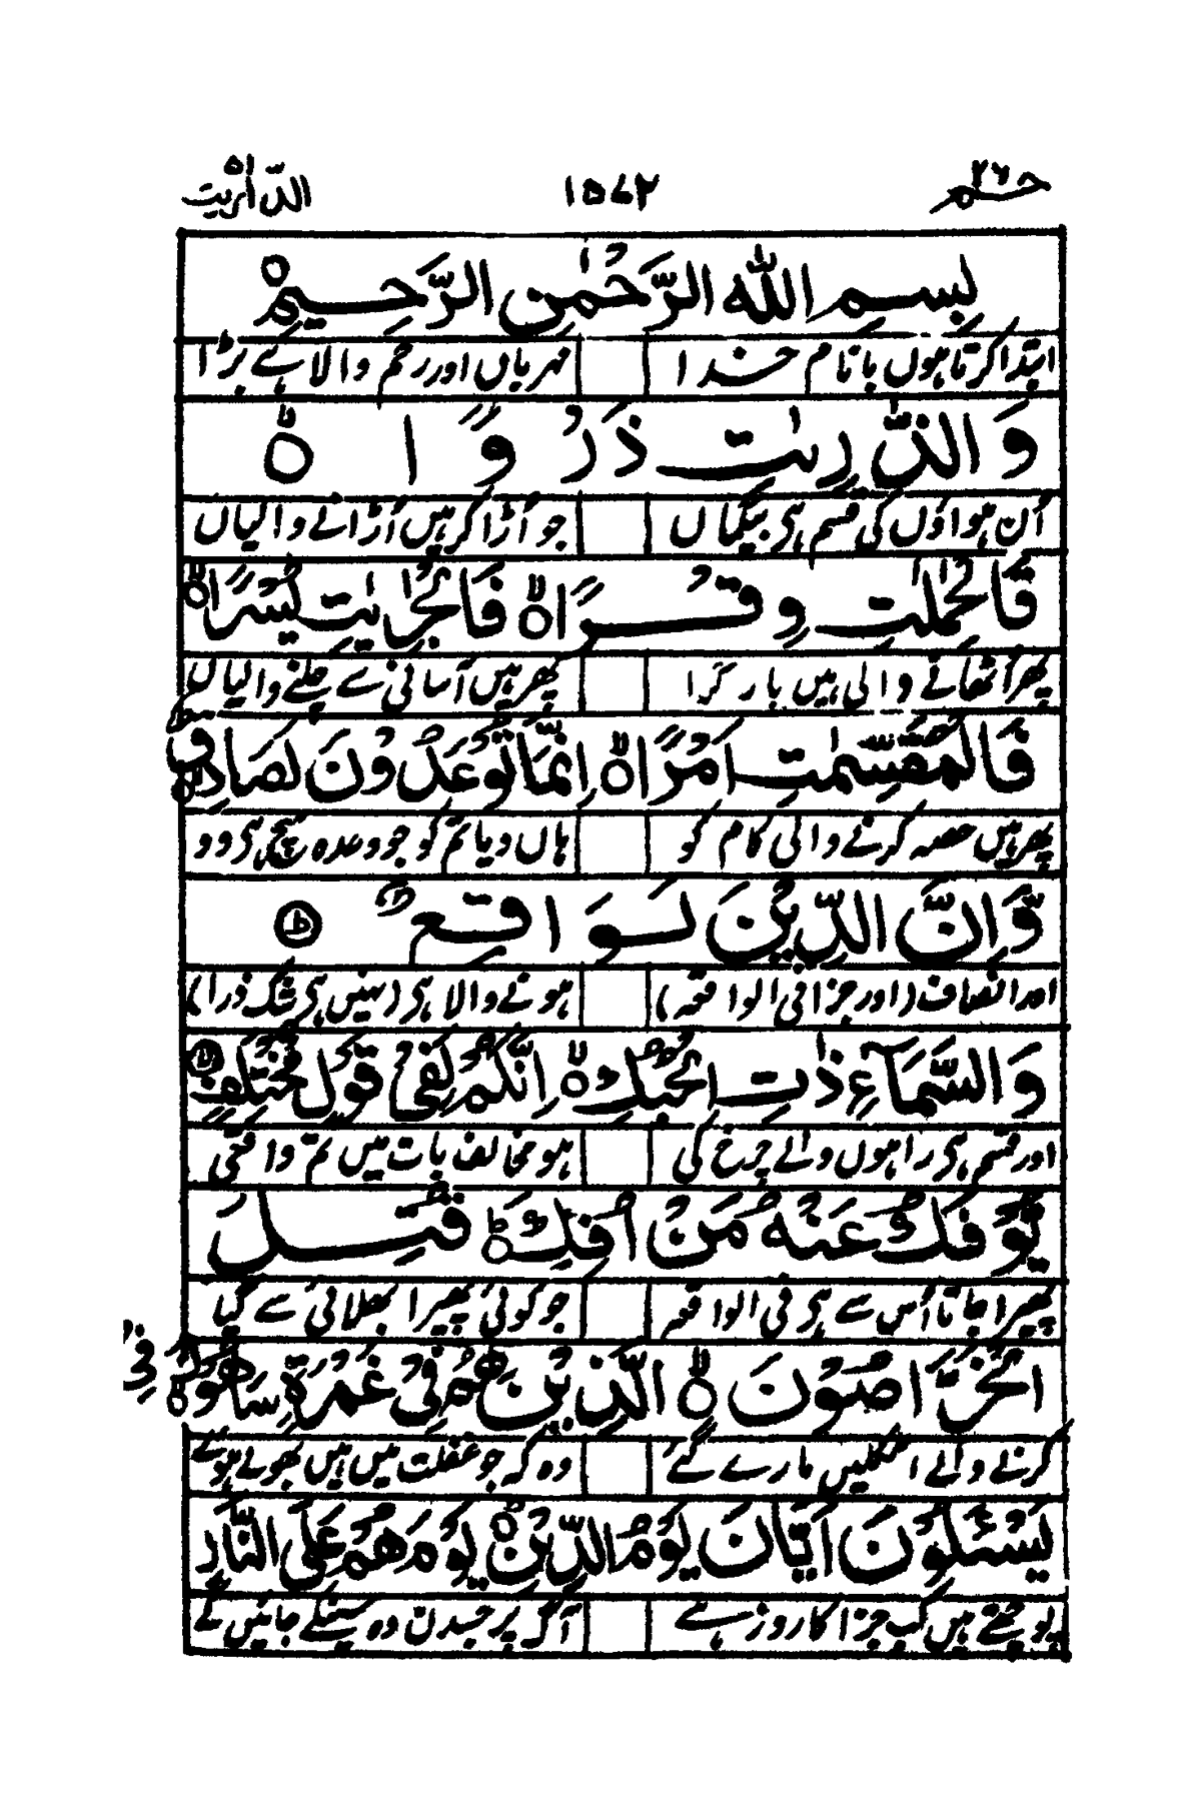 حٰمٓ ٢٦ ١٥٧٢ الذّٰرِیٰت ٥١
بِسْمِ اللهِ الرَّحْمٰنِ الرَّحِیْمِ
ابتدا کرتا ہوں با نام خدا مہرباں اور رحم والا ہے بڑا
وَالذّٰرِیٰتِ ذَرْوًا
اُن ہواؤں کی قسم ہی بیگماں جو اُڑا کر ہیں اُڑانے والیاں
فَالْحٰمِلٰتِ وِقْرًا فَالْجٰرِیٰتِ یُسْرًا
پھر اُٹھانے والی ہیں بار گرا پھر ہیں آسانی سے چلنے والیاں
فَالْمُقَسِّمٰتِ اَمْرًا اِنَّمَا تُوْعَدُوْنَ لَصَادِقٌ
پھر ہیں حصہ کرنے والی کام کو ہاں دیا تم کو جو وعدہ سچ ہی وو
وَّاِنَّ الدِّیْنَ لَوَاقِعٌ
اور انصاف (اور جزا فی الواقعہ) ہونے والا ہی (نہیں ہی شک ذرا)
وَالسَّمَآءِ ذَاتِ الْحُبُكِ اِنَّكُمْ لَفِیْ قَوْلٍ مُّخْتَلِفٍ
اور قسم ہی راہوں والے چرخ کی ہو مخالف بات میں تم واقعی
یُّؤْفَكُ عَنْهُ مَنْ اُفِكَ قُتِلَ
پھیرا جاتا اُس سے ہی فی الواقعہ جو کوئی پھیرا بھلائی سے گیا
الْخَرّٰصُوْنَ الَّذِیْنَ هُمْ فِیْ غَمْرَةٍ سَاهُوْنَ
کرنے والے اٹکلیں مارے گئے وہ کہ جو غفلت میں ہیں بھولے ہوئے
یَسْئَلُوْنَ اَیَّانَ یَوْمُ الدِّیْنِ یَوْمَ هُمْ عَلَی النَّارِ
پوچھتے ہیں کب جزا کا روز ہے آگ پر جسدن وہ سینکے جائیں گے